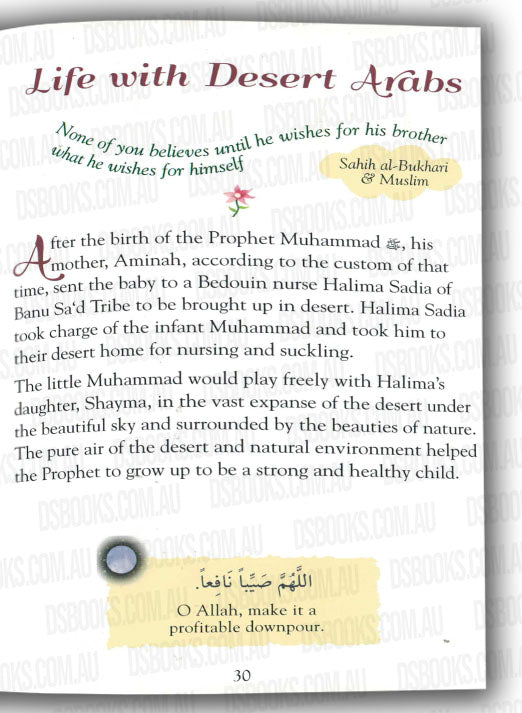 Life with Desert Arabs
None of you believes until he wishes for his brother
what he wishes for himself
Sahih al-Bukhari
& Muslim
After the birth of the Prophet Muhammad ﷺ, his
mother, Aminah, according to the custom of that
time, sent the baby to a Bedouin nurse Halima Sadia of
Banu Sa‘d Tribe to be brought up in desert. Halima Sadia
took charge of the infant Muhammad and took him to
their desert home for nursing and suckling.
The little Muhammad would play freely with Halima’s
daughter, Shayma, in the vast expanse of the desert under
the beautiful sky and surrounded by the beauties of nature.
The pure air of the desert and natural environment helped
the Prophet to grow up to be a strong and healthy child.
اللَّهُمَّ صَيِّباً نَافِعاً.
O Allah, make it a
profitable downpour.
30
DSBOOKS.COM.AU